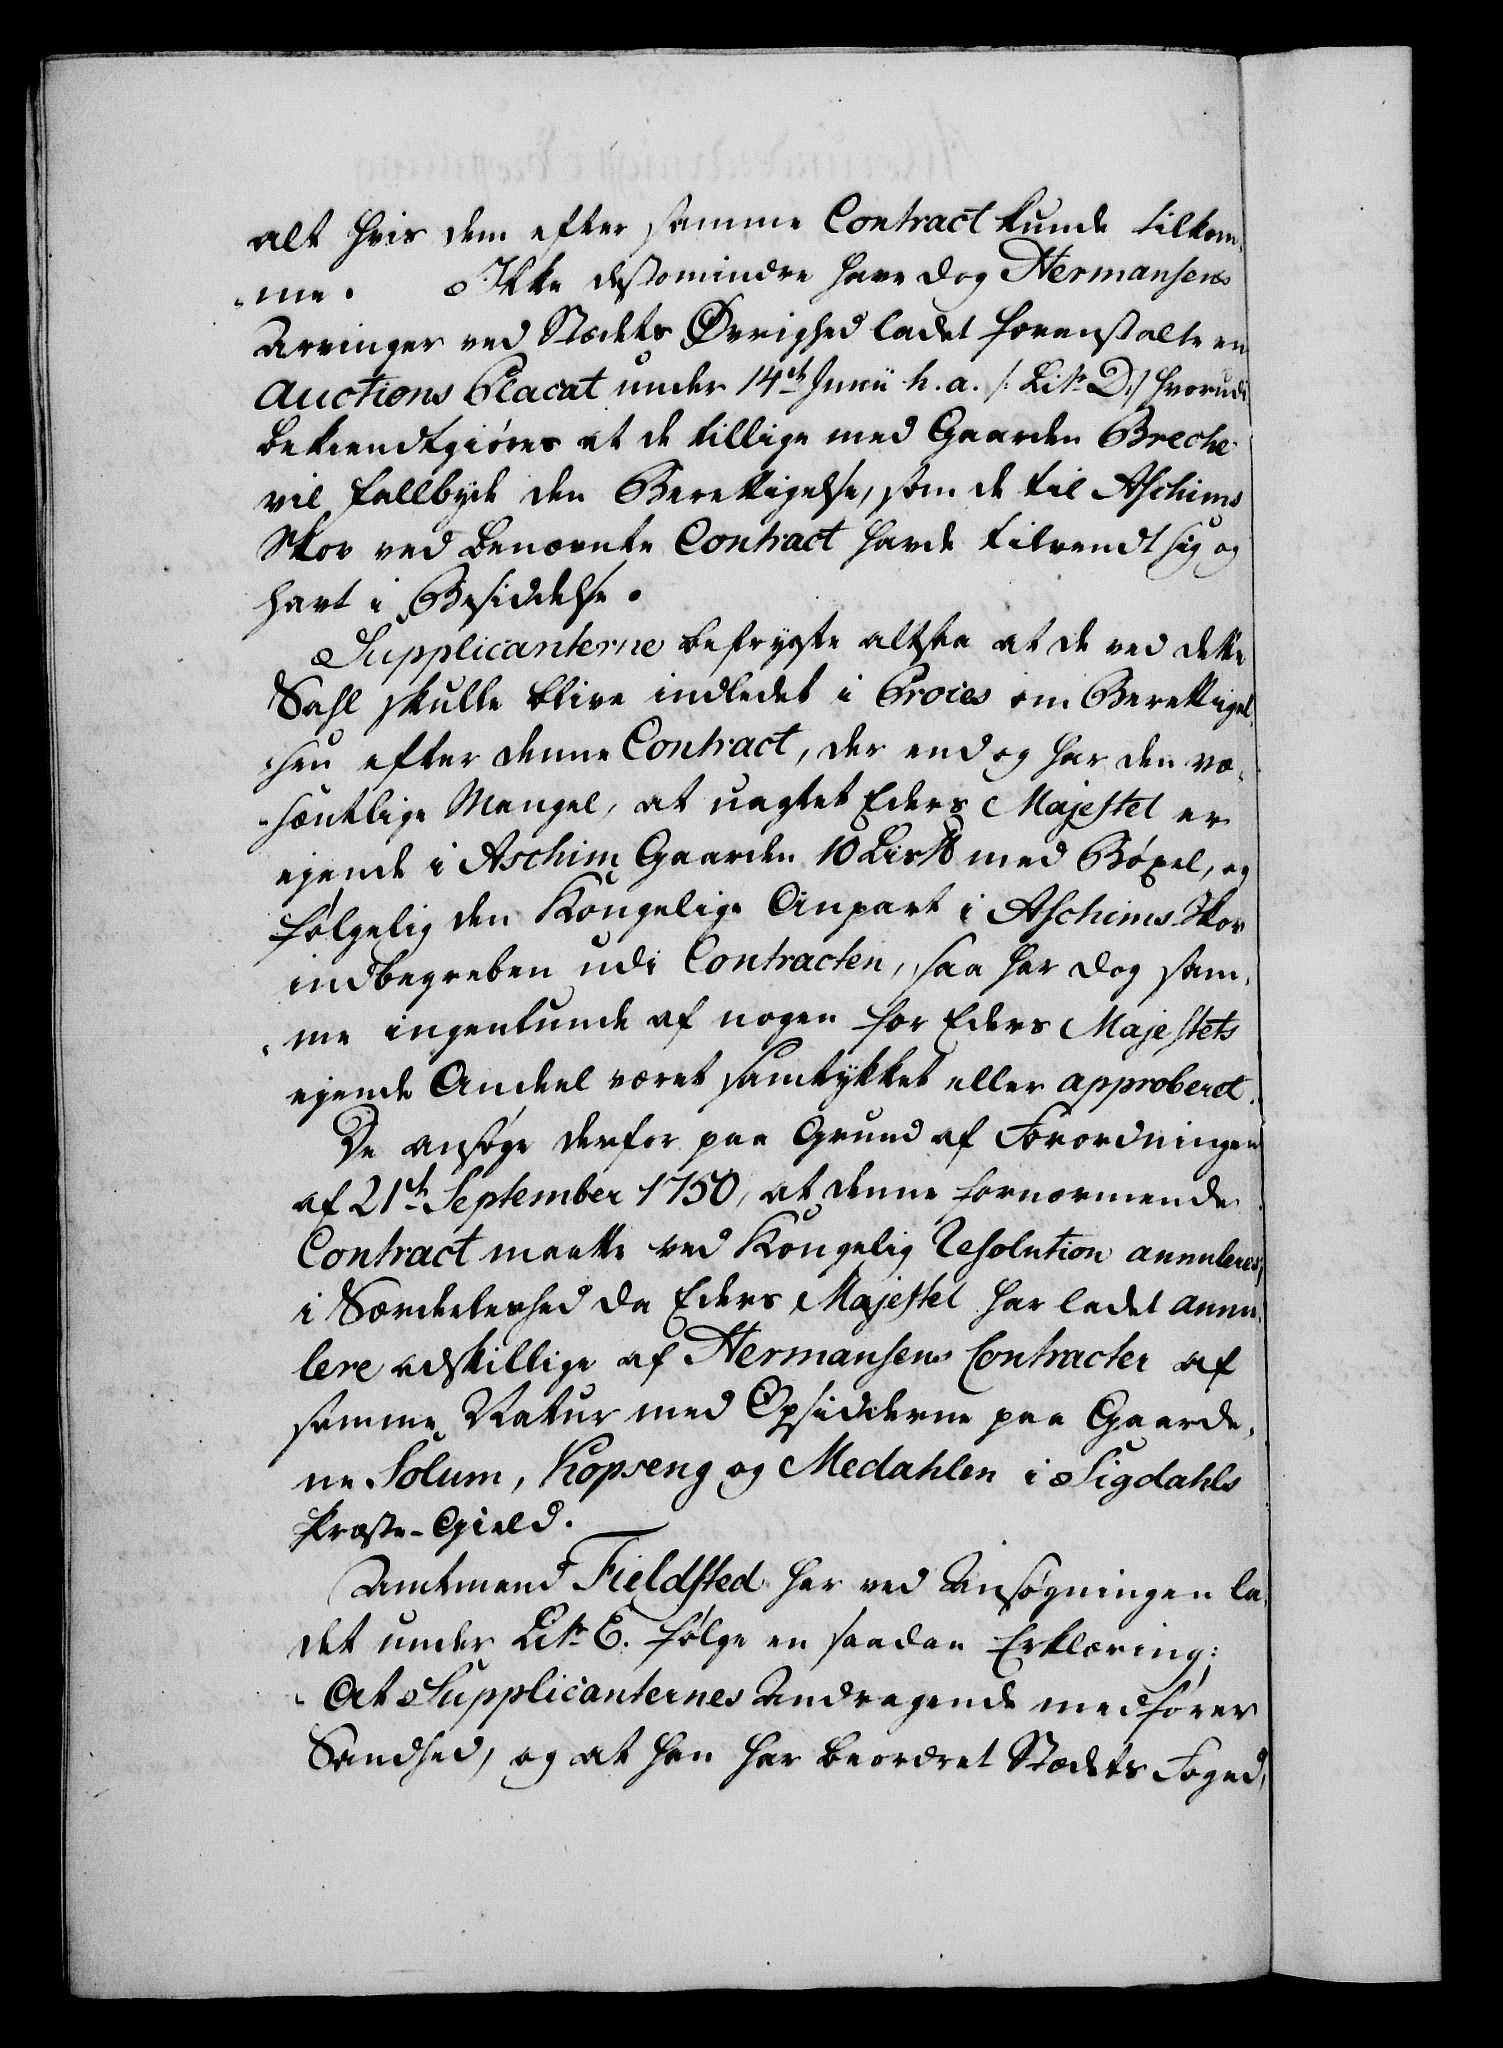 alt hvis dem efter samme Contract kunde tilkom-
-me. Ikke destomindre have dog Hermansens
Arvinger ved Stædets Øvrighed ladet foranstalte en
Auctions Placat under 14de Junii h. a. /: Litr. D :/ hvorudi
bekiendtgiøres at de tillige med Gaarden Breche
vil falbyde den Berettigelse, som de til Aschims
Skov ved benævnte Contract havde tilvendt sig og
havt i Besiddelse.
Supplicanterne befrygte altsaa at de ved dette
Sahl skulle blive indledet i Proces om Berettigel-
-sen efter denne Contract, der endog har den væ-
-sentlige Mangel, at uagtet Eders Majestet er
ejende i Aschim Gaarden 10 Lis℔ med Bøxel, og
følgelig den Kongelige Anpart i Aschims Skov
indbegreben udi Contracten, saa har dog sam-
-me ingenlunde af nogen for Eders Majestets
ejende Andeel været samtykket eller approberet.
De ansøge derfor paa Grund af Forordningen
af 21de September 1750, at denne fornærmende
Contract maatte ved Kongelig Resolution annuleres,
i Særdeleshed da Eders Majestet har ladet annu-
lere adskillige af Hermansens Contracter af
samme Natur med Opsidderne paa Gaarde-
ne Solum, Kopseng og Medahlen i Sigdahls
Præste-Gield.
Amtmand Fieldsted har ved Ansøgningen la-
det under Litr. E. følge en saadan Erklæring:
At Supplicanternes Andragende medfører
Sandhed, og at han har beordret Stædets Foged,